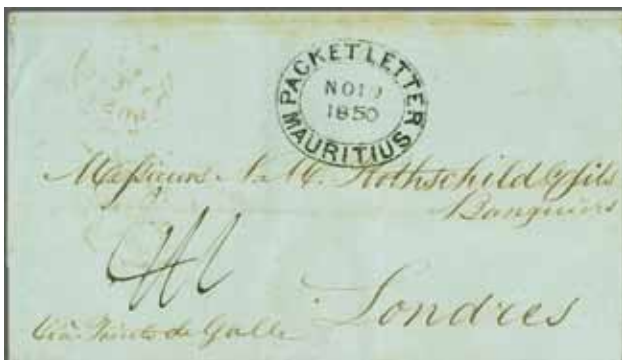 PACKET LETTER
NO19
1850
MAURITIUS
Messieurs N. M. Rothschild & fils
Banquiers
Londres
Via Pointe de Galle